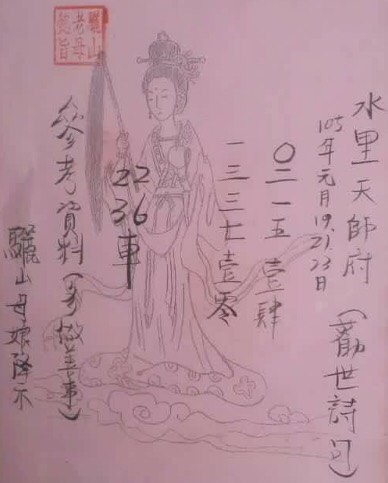 水里天師府（勸世詩句）
105年元月19.21.23日
〇二一五壹肆
一三三七壹零
22
36車
參考資料（多做善事）
驪山母娘降示
驪山
老母